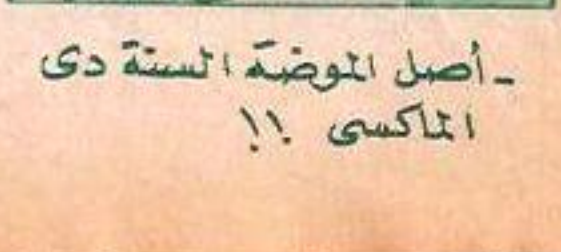 - أصل الموضة السنة دى
الماكسى !!